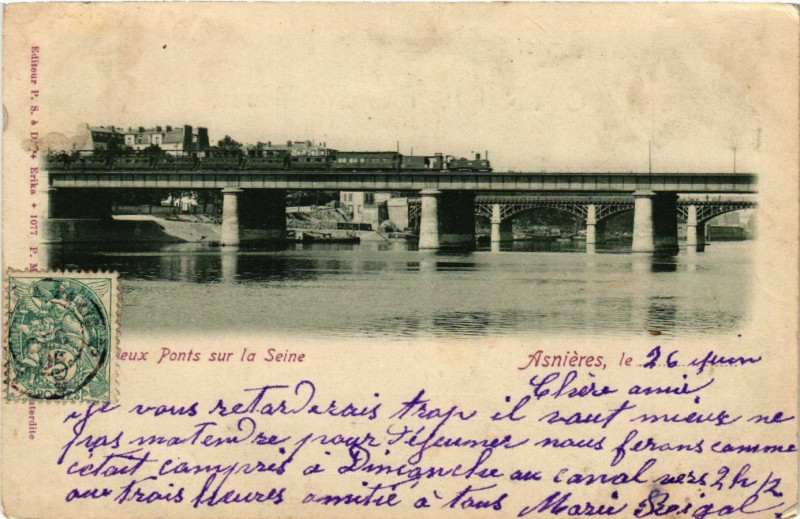 Editeur P. S. à D. Erika 1077 P. M.
interdite
eux Ponts sur la Seine
Asnières, le 26 juin
Chère amie
Je vous retarderais trop il vaut mieux ne
pas m'attendre pour déjeuner nous ferons comme
c'était compris à Dimanche au canal vers 2h 1/2
ou trois heures amitié à tous Marie